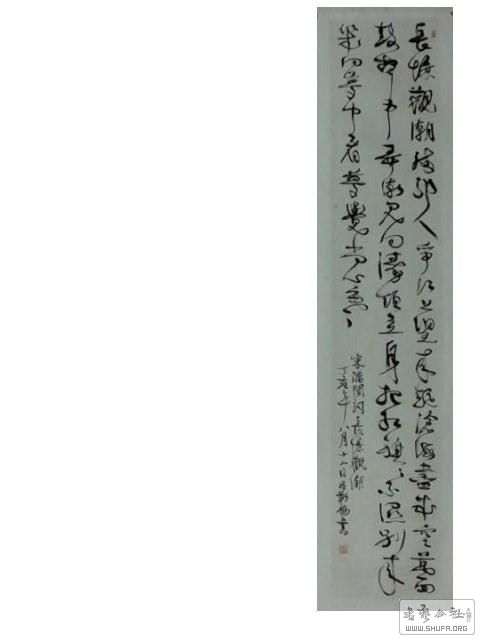 長憶觀潮滿郭人爭江上望來疑滄海盡成空萬面
鼓聲中弄潮兒向濤頭立手把紅旗〻不濕別來
幾向夢中看夢覺尚心寒
宋潘閬詞長憶觀潮
丁亥年八月十八日 書
書藝公社
WWW.SHUFA.ORG